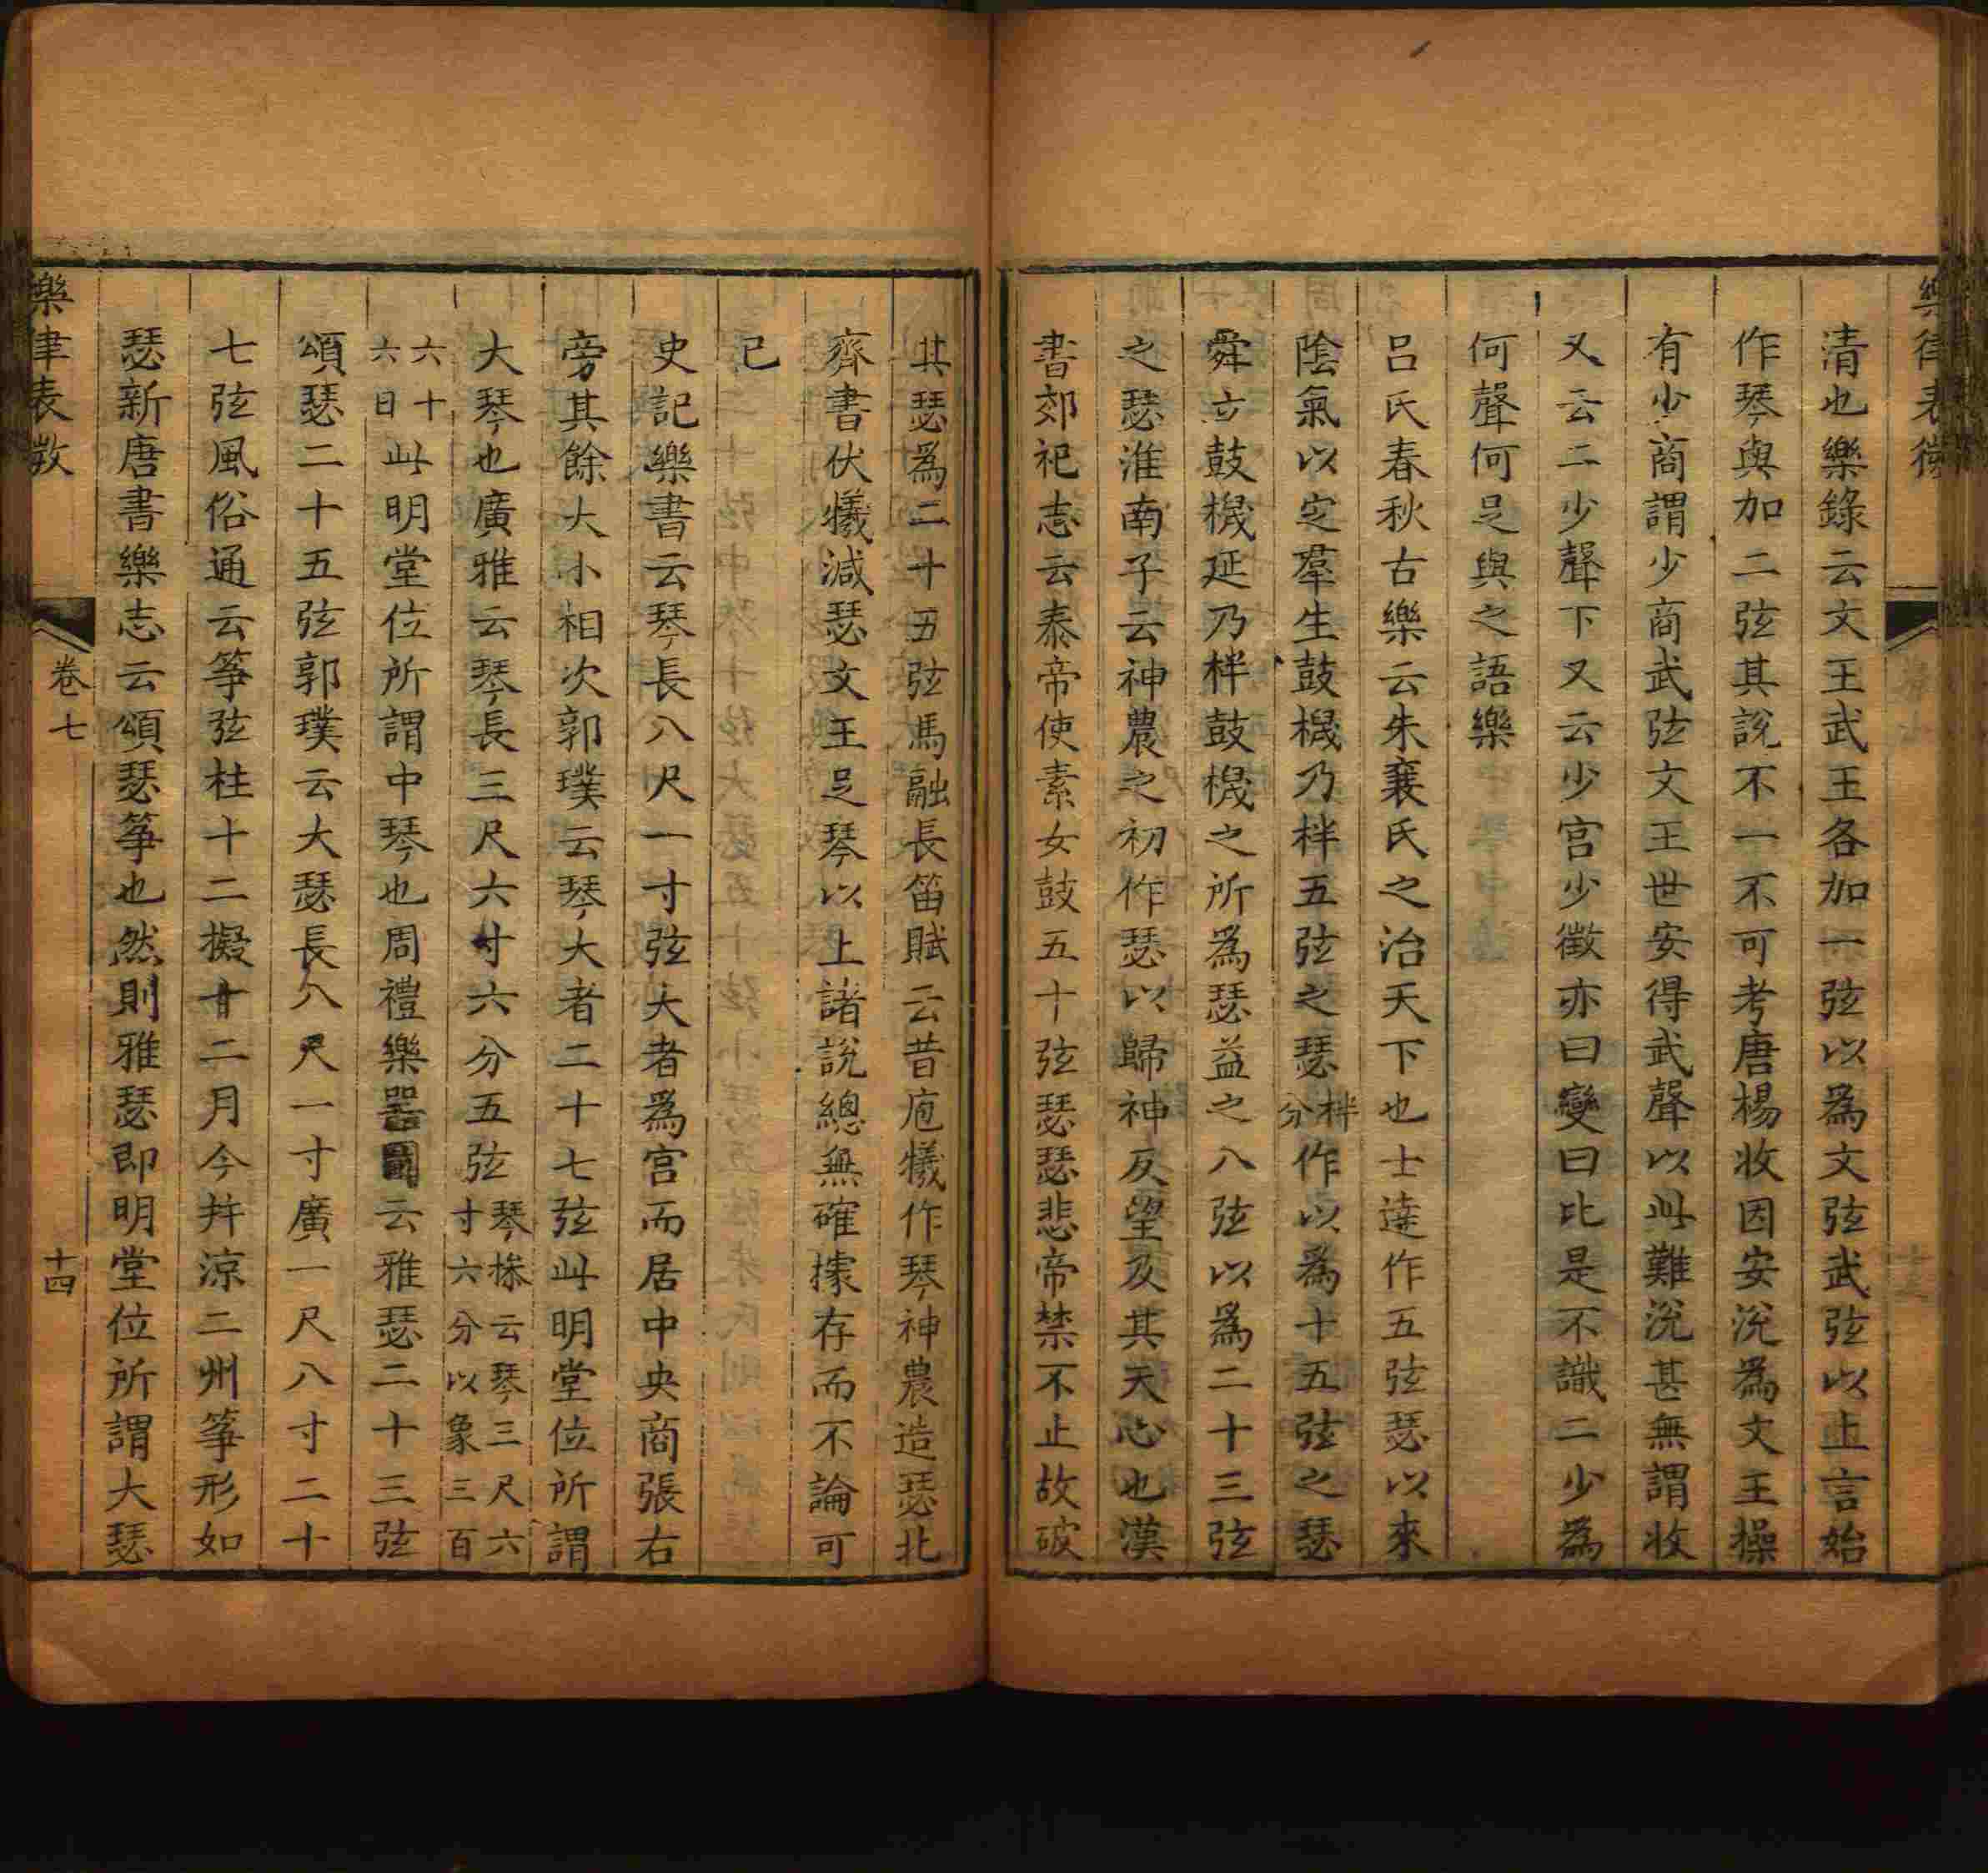 樂律表微
清也樂錄云文王武王各加一弦以為文弦武弦以上言始
作琴與加二弦其說不一不可考唐楊收因安涚為文王操
有少商謂少商武弦文王世安得武聲以此難涚甚無謂收
又云二少聲下又云少宮少徵亦曰變曰比是不識二少為
何聲何足與之語樂
呂氏春秋古樂云朱襄氏之治天下也士達作五弦瑟以來
陰氣以定羣生鼓機乃柈五弦之瑟柈分作以為十五弦之瑟
舜立鼓機延乃柈鼓機之所為瑟益之八弦以為二十三弦
之瑟淮南子云神農之初作瑟以歸神反望及其天心也漢
書郊祀志云泰帝使素女鼓五十弦瑟瑟悲帝禁不止故破
其瑟爲二十五弦馬融長笛賦云昔庖犧作琴神農造瑟北
齊書伏犧減瑟文王足琴以上諸說總無確據存而不論可
已
史記樂書云琴長八尺一寸弦大者爲宮而居中央商張右
旁其餘大小相次郭璞云琴大者二十七弦此明堂位所謂
大琴也廣雅云琴長三尺六寸六分五弦琴操云琴三尺六寸六分以象三百
六十六日此明堂位所謂中琴也周禮樂器圖云雅瑟二十三弦
頌瑟二十五弦郭璞云大瑟長八尺一寸廣一尺八寸二十
七弦風俗通云筝弦柱十二擬十二月今并涼二州筝形如
瑟新唐書樂志云頌瑟筝也然則雅瑟即明堂位所謂大瑟
樂律表微
卷七
十四